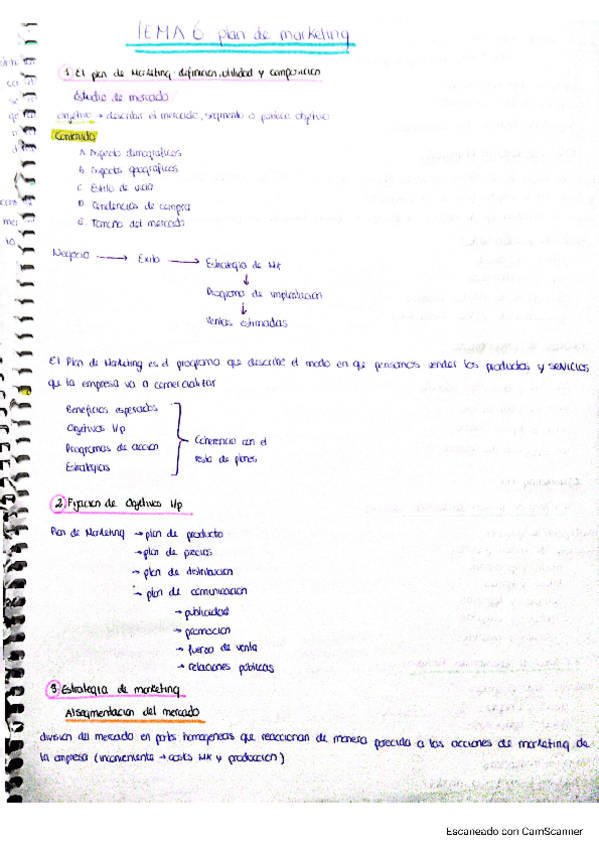 TEMA 6 plan de marketing
1 El plan de Marketing: definicion, utilidad y composicion
Estudio de mercado
objetivo → describir el mercado, segmento o publico objetivo
Contenido
A. Aspectos demograficos
B. Aspectos geograficos
C. Estilo de vida
D. Tendencias de compra
Tamaño del mercado
Negocio → Exito → Estrategia de MK
↓
Programa de implantacion
↓
Ventas estimadas
El Plan de Marketing es el programa que describe el modo en que pensamos vender los productos y servicios
que la empresa va a comercializar
Beneficios esperados
Objetivos
Programas de accion
Estrategias
Coherencia con el
resto de planes
2 Fijacion de Objetivos
Plan de Marketing → plan de producto
→ plan de precios
→ plan de distribucion
→ plan de comunicacion
→ publicidad
→ promocion
→ fuerza de venta
→ relaciones públicas
3 Estrategia de marketing
A) Segmentacion del mercado
division del mercado en partes homogeneas que reaccionan de manera parecida a las acciones de marketing de
la empresa (inconveniente → costs MK y produccion)
Escaneado con CamScanner